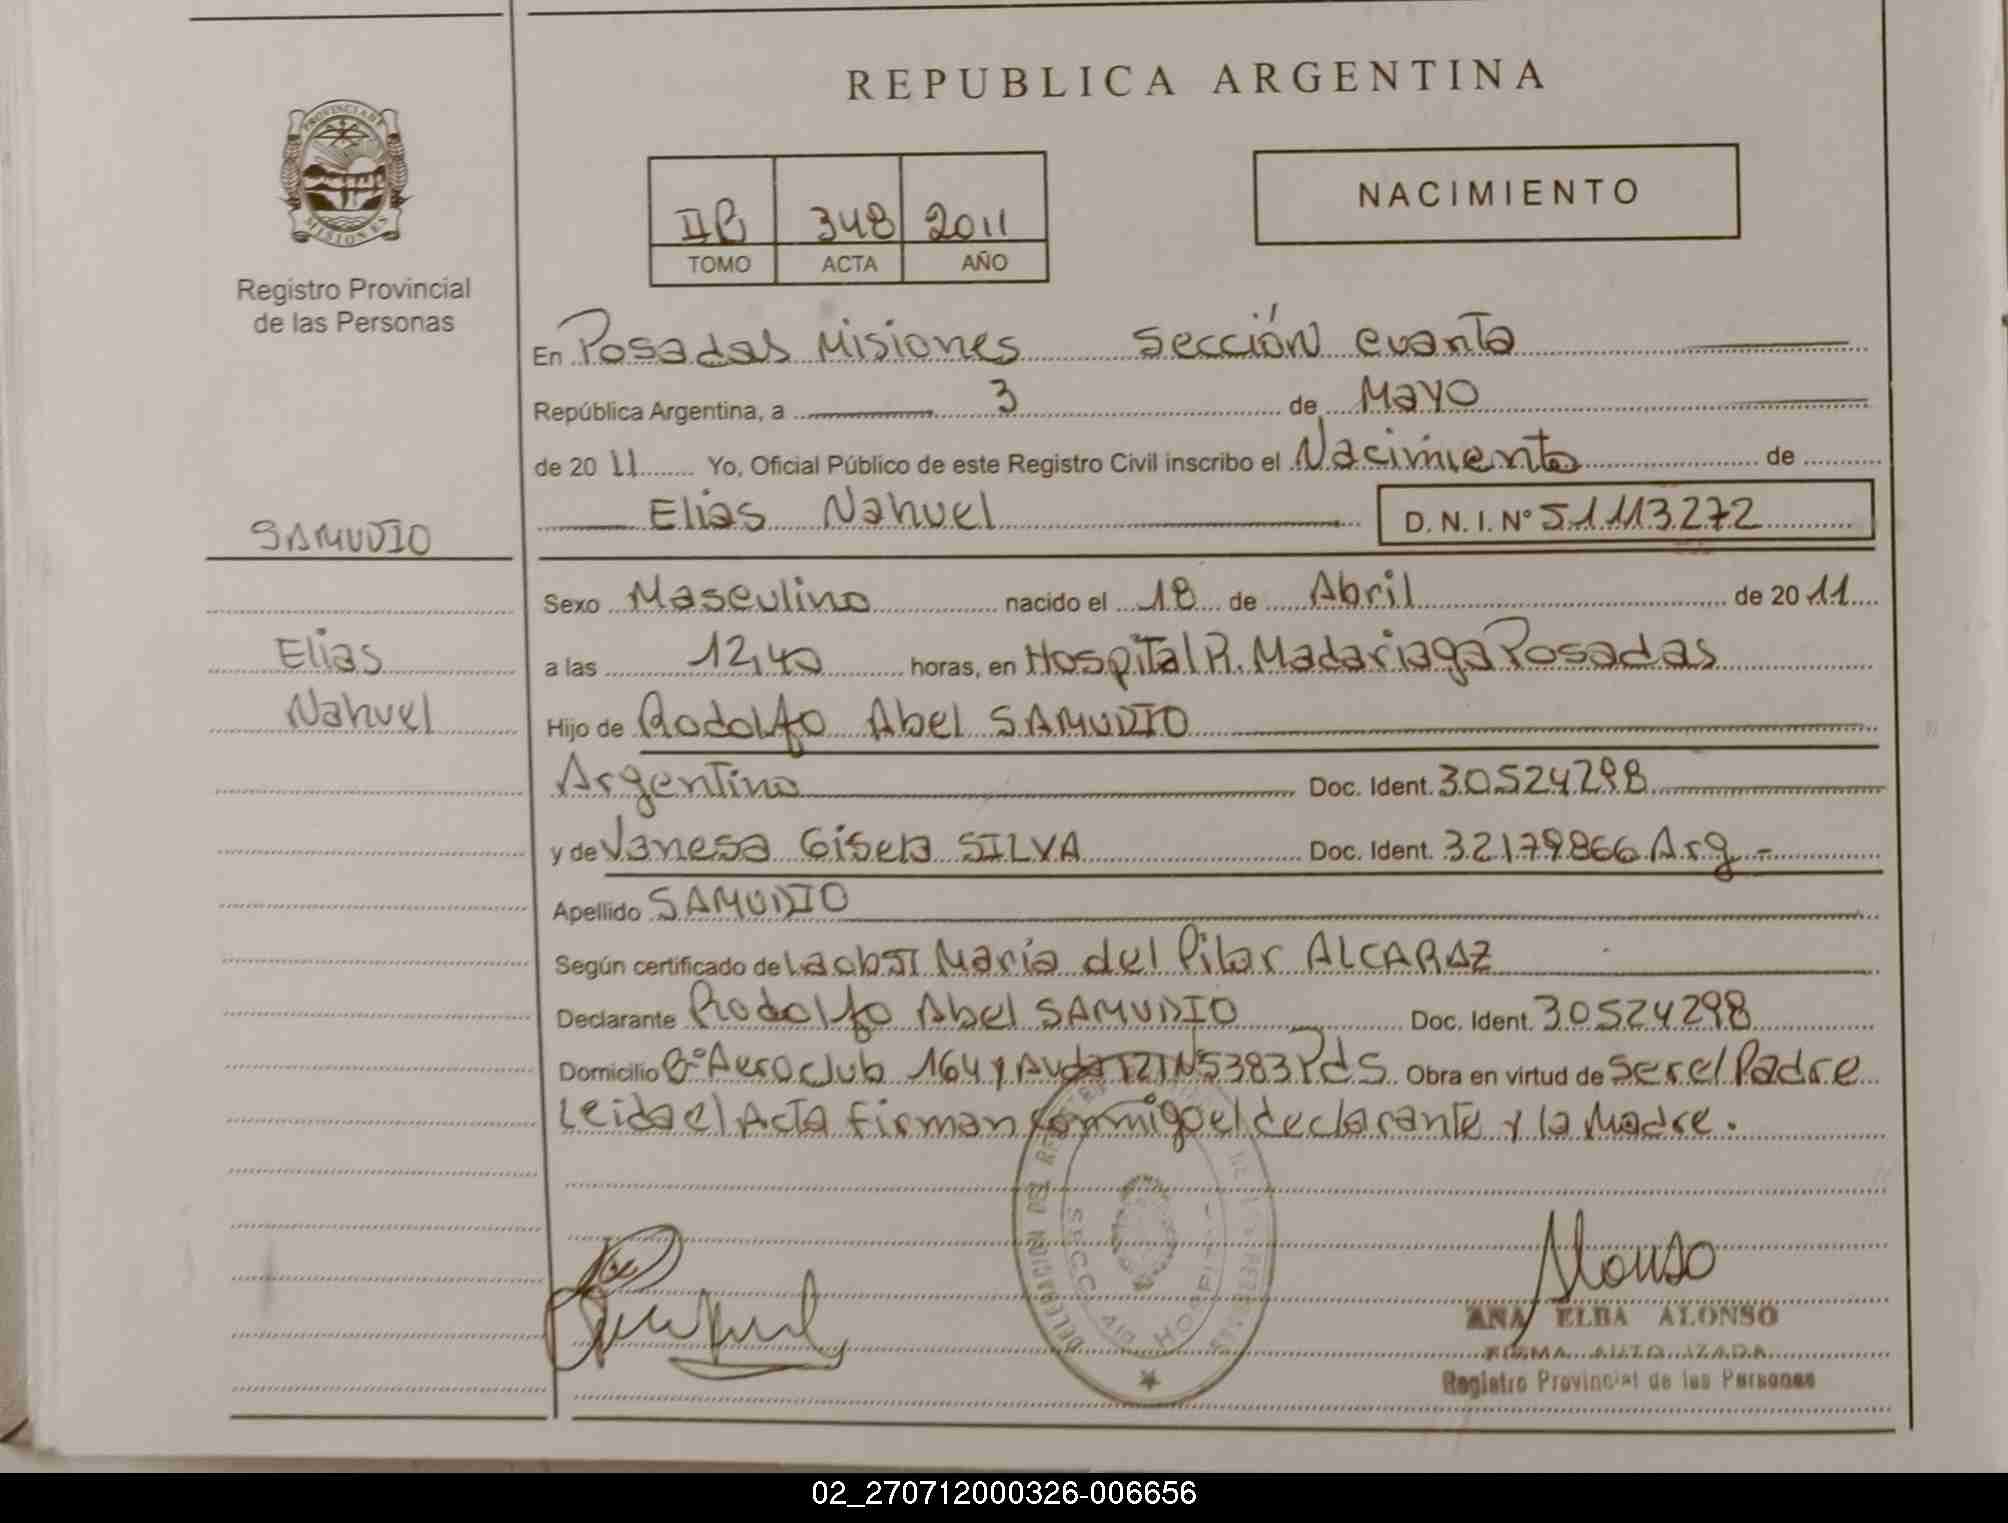 REPUBLICA ARGENTINA
PROVINCIA DE MISIONES
Registro Provincial
de las Personas
IIB 348 2011
TOMO ACTA AÑO
NACIMIENTO
En Posadas Misiones sección cuarta
República Argentina, a 3 de Mayo
de 2011 Yo, Oficial Público de este Registro Civil inscribo el Nacimiento de
Elias Nahuel D. N. I. Nº 51113272
SAMUDIO
Elias
Nahuel
Sexo Masculino nacido el 18 de Abril de 2011
a las 12,40 horas, en Hospital R. Madariaga Posadas
Hijo de Rodolfo Abel SAMUDIO
Argentino Doc. Ident. 30524298
y de Vanesa Gisela SILVA Doc. Ident. 32179866 Arg -
Apellido SAMUDIO
Según certificado de La obst Maria del Pilar ALCARAZ
Declarante Rodolfo Abel SAMUDIO Doc. Ident. 30524298
Domicilio Bº Aeroclub 164 y Avda 5383 Pds. Obra en virtud de ser el Padre
Leida el Acta firman conmigo el declarante y la Madre.
DELEGACION DEL
SECC. HOSPITAL
Alonso
ANA ELBA ALONSO
FIRMA AUTORIZADA
Registro Provincial de las Personas
02_270712000326-006656